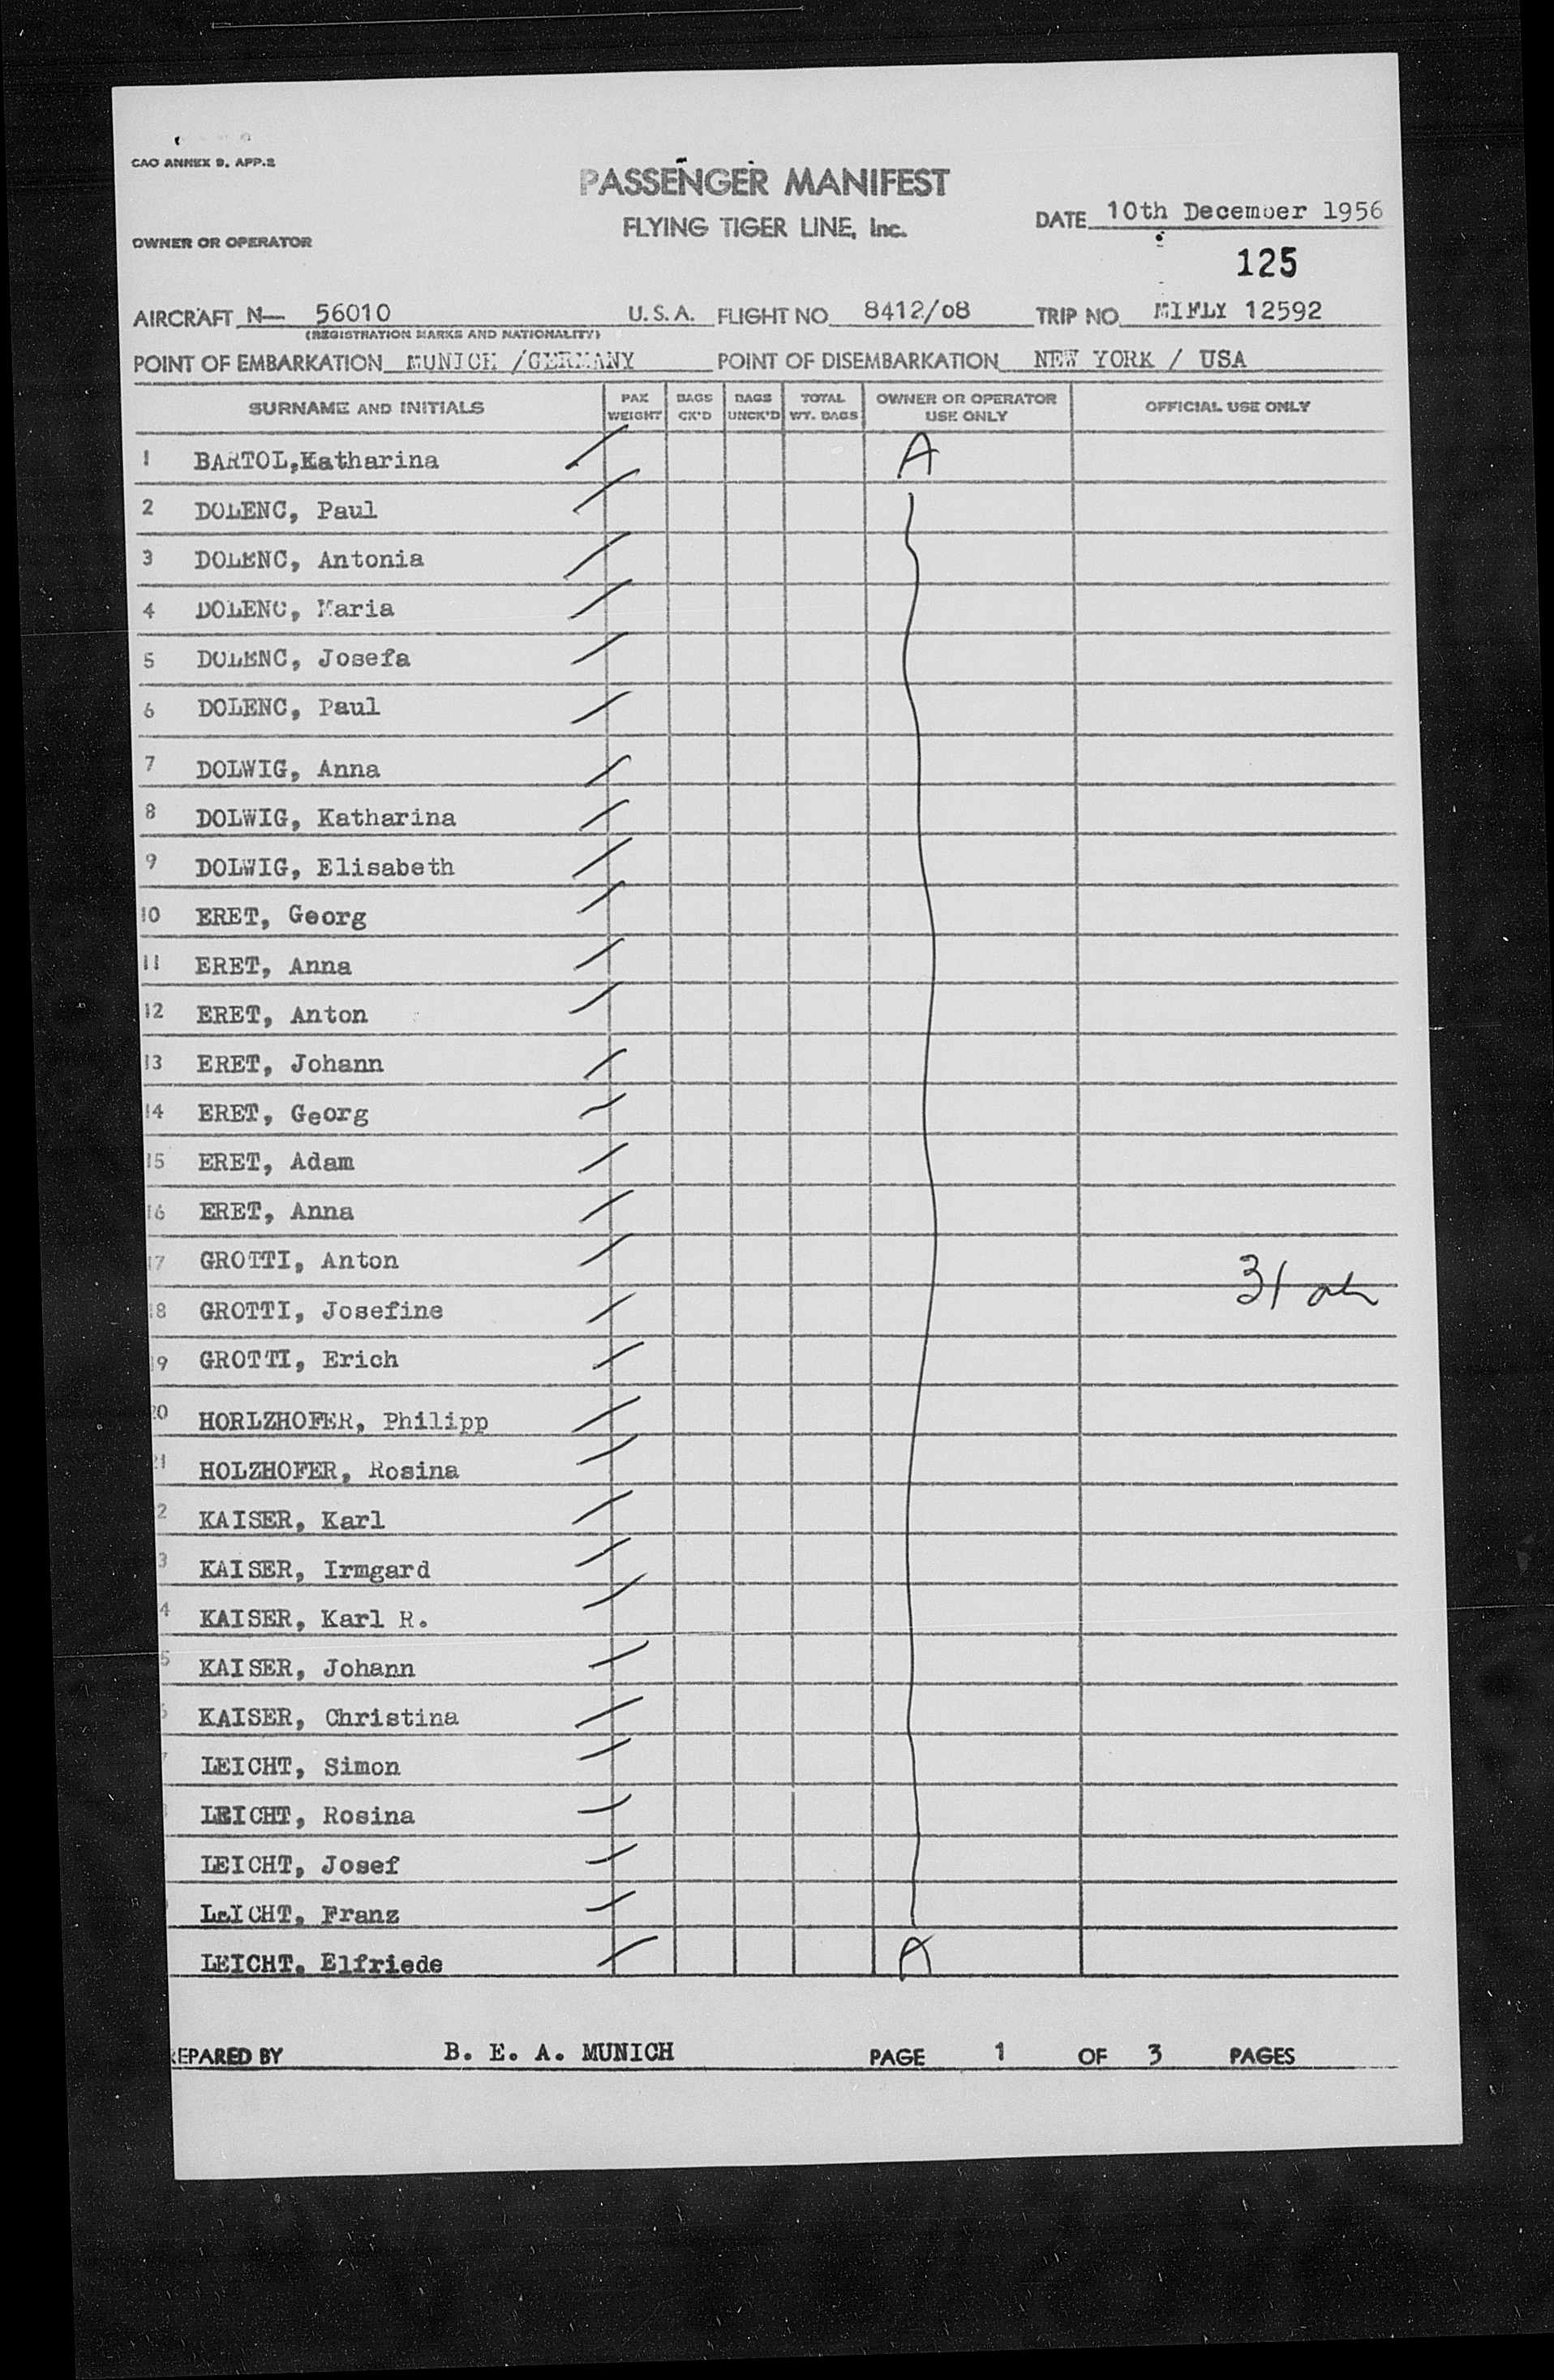 CAO ANNEX 9. APP.2
PASSENGER MANIFEST
FLYING TIGER LINE, Inc.
DATE 10th December 1956
OWNER OR OPERATOR
125
AIRCRAFT N— 56010 U.S.A. FLIGHT NO 8412/08 TRIP NO MIFLY 12592
(REGISTRATION MARKS AND NATIONALITY)
POINT OF EMBARKATION MUNICH /GERMANY POINT OF DISEMBARKATION NEW YORK / USA
SURNAME AND INITIALS PAX WEIGHT BAGS CK'D BAGS UNCK'D TOTAL WT. BAGS OWNER OR OPERATOR USE ONLY OFFICIAL USE ONLY
1 BARTOL,Katharina A
2 DOLENC, Paul
3 DOLENC, Antonia
4 DOLENC, Maria
5 DOLENC, Josefa
6 DOLENC, Paul
7 DOLWIG, Anna
8 DOLWIG, Katharina
9 DOLWIG, Elisabeth
10 ERET, Georg
11 ERET, Anna
12 ERET, Anton
13 ERET, Johann
14 ERET, Georg
15 ERET, Adam
16 ERET, Anna
17 GROTTI, Anton
31
18 GROTTI, Josefine
19 GROTTI, Erich
20 HORLZHOFER, Philipp
21 HOLZHOFER, Rosina
2 KAISER, Karl
3 KAISER, Irmgard
4 KAISER, Karl R.
5 KAISER, Johann
KAISER, Christina
LEICHT, Simon
LEICHT, Rosina
LEICHT, Josef
LEICHT, Franz
LEICHT, Elfriede A
EPARED BY B. E. A. MUNICH PAGE 1 OF 3 PAGES